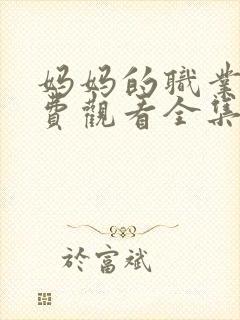 妈妈的職業
費觀看全集
於富斌